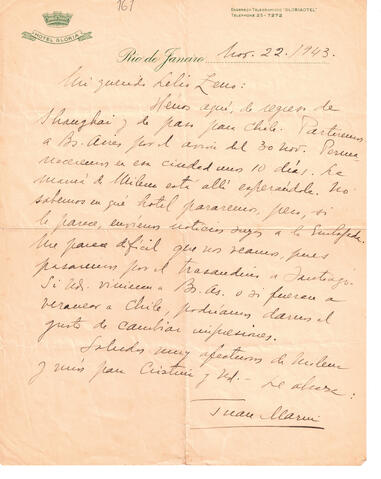 161
HOTEL GLORIA
ENDEREÇO TELEGRAPHICO "GLORIAOTEL"
TELEPHONE 25-7272
Rio de Janeiro, Nov. 22. 1943.
Mi querido Lelio Zeno:
Hénos aquí, de regreso de
Shanghai y de paso para Chile. Partiremos
a Bs. Aires por el avión del 30 nov. Perma
neceremos en esa ciudad unos 10 días. La
mamá de Milena está allí esperándola. No
sabemos en qué hotel pararemos, pero, si
le parece, envíenos noticias suyas a la Embajada.
Me parece difícil que nos veamos, pues
pasaremos por el trasandino a Santiago.
Si Uds. vinieran a Bs. As. o si fueran a
veranear a Chile, podríamos darnos el
gusto de cambiar impresiones.
Saludos muy afectuosos de Milena
y míos para Cristina y Ud. — Le abraza:
Juan Marin